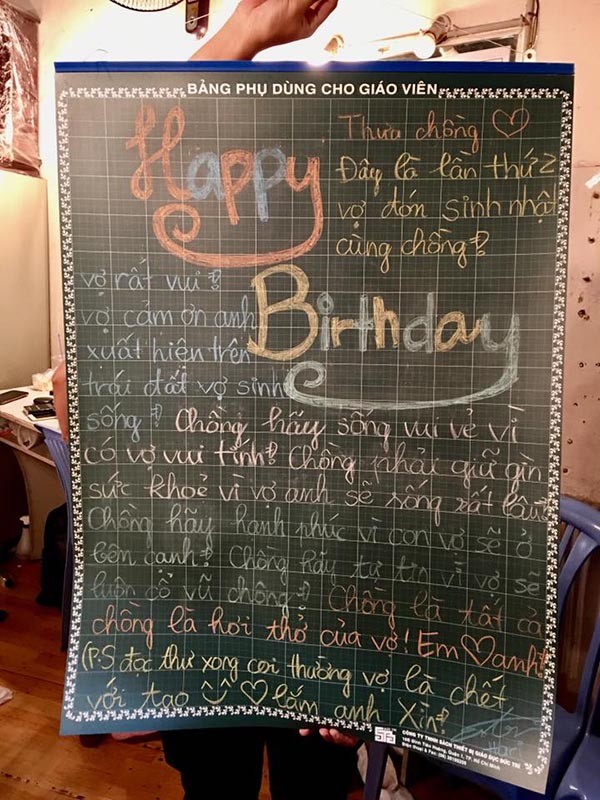 BẢNG PHỤ DÙNG CHO GIÁO VIÊN
Happy
Thưa chồng ♡
Đây là lần thứ 2
vợ đón sinh nhật
cùng chồng!
vợ rất vui!
Birthday
vợ cảm ơn anh
xuất hiện trên
trái đất vợ sinh
sống! Chồng hãy sống vui vẻ vì
có vợ vui tính! Chồng phải giữ gìn
sức khoẻ vì vợ anh sẽ sống rất lâu!
Chồng hãy hạnh phúc vì con vợ sẽ ở
bên cạnh! Chồng hãy tự tin vì vợ sẽ
luôn cổ vũ chồng! Chồng là tất cả
chồng là hơi thở của vợ! Em ♡ anh!
(P.S đọc thư xong coi thường vợ là chết
với tao ♡ lắm anh Xìn!
Hari
STB
CÔNG TY TNHH SÁCH THIẾT BỊ GIÁO DỤC ĐỨC TRÍ